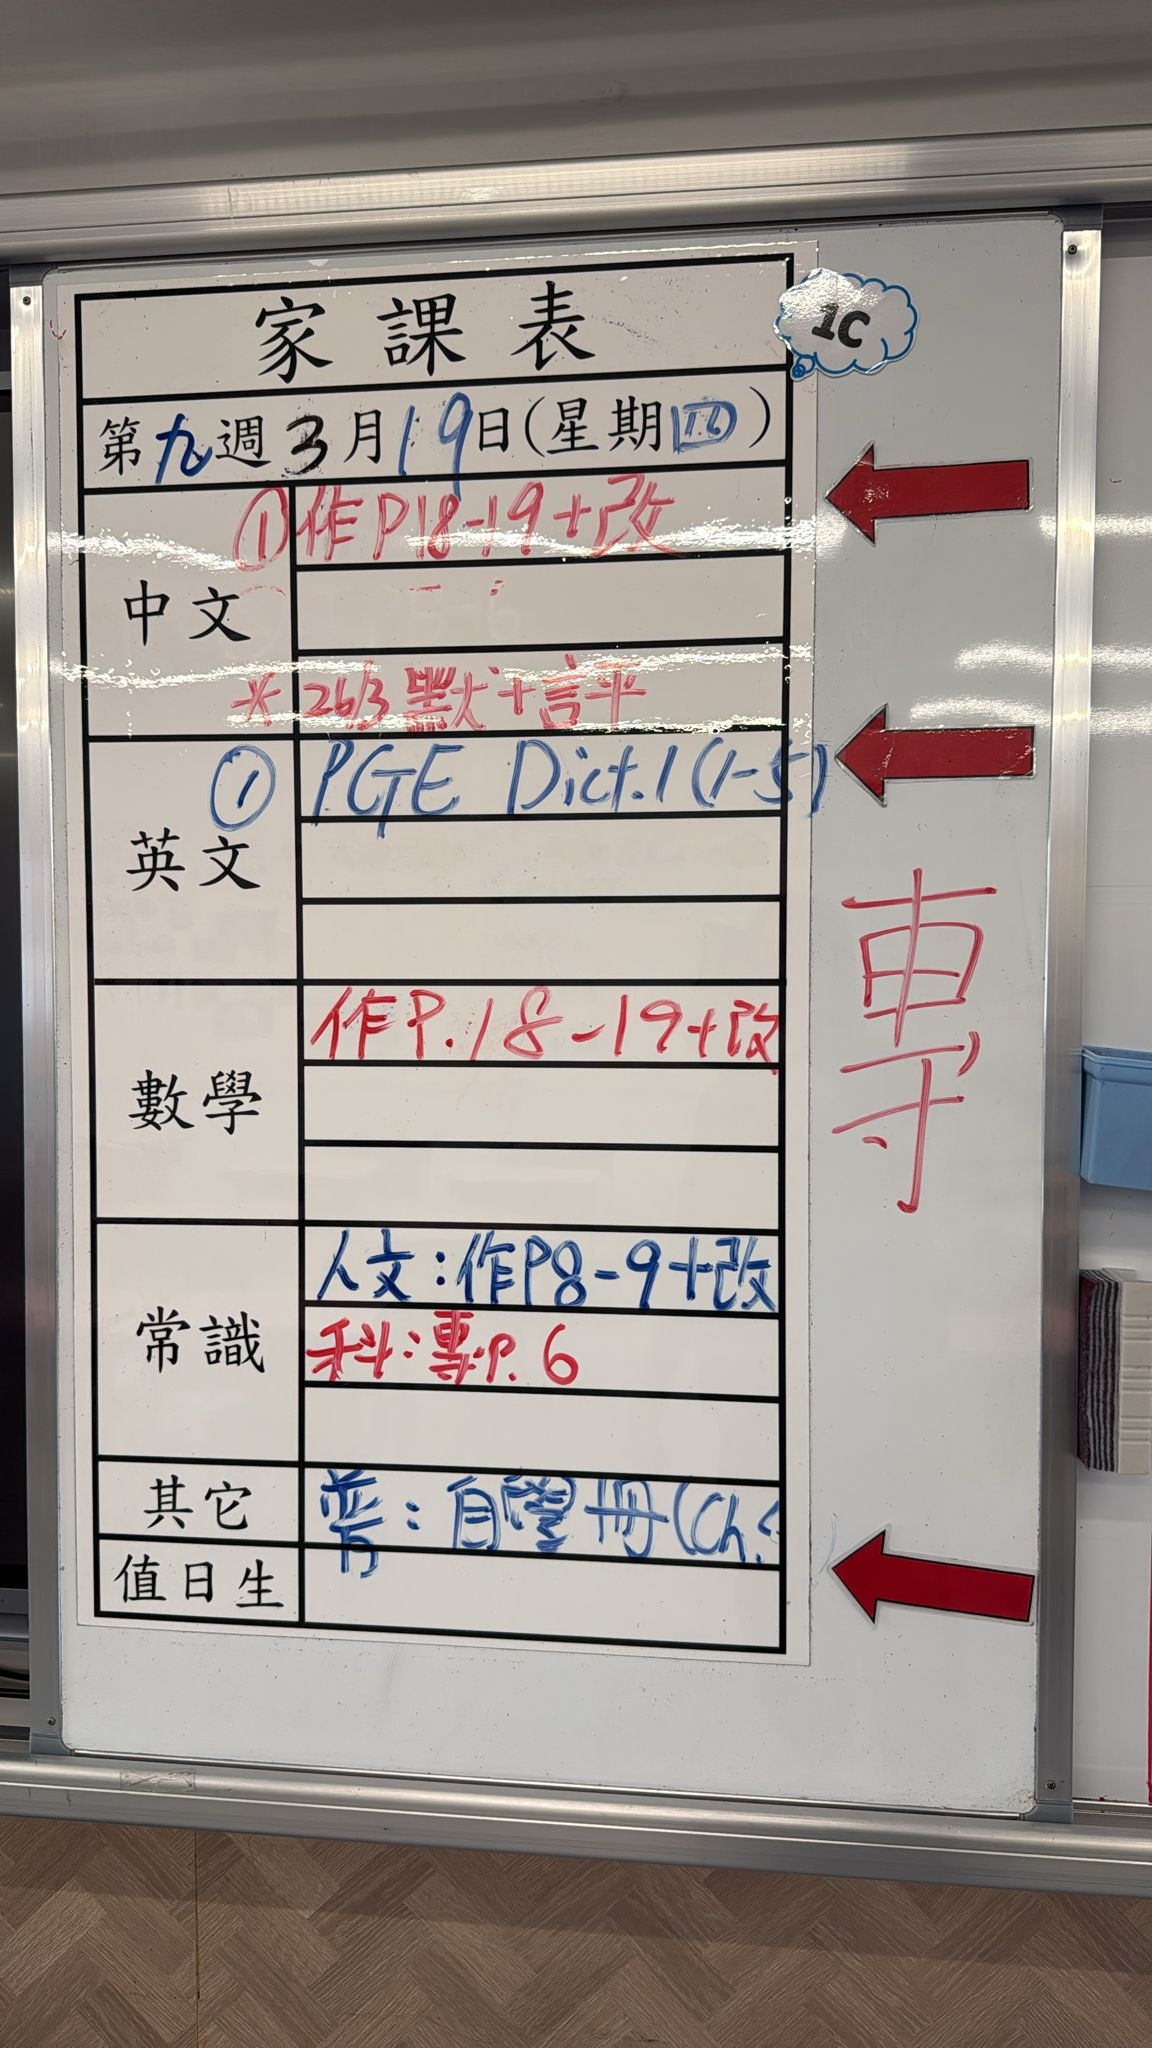 家課表
1C
第九週3月19日(星期四)
中文
①作P18-19+改
*26/3默+評
英文
①PGE Dict.1(1-5)
數學
作P.18-19+改
常識
人文:作P8-9+改
科:專P.6
其它
普:自學冊(Ch.
值日生
專